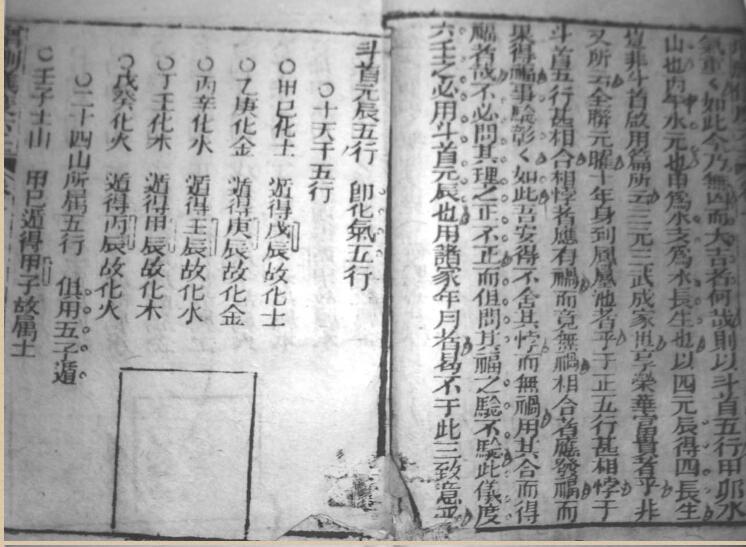 氣重く如此今乃無因而大吉者何哉則以斗首五行甲卯水
山也丙年水元也申為水玄為水長生也以四元辰得四長生
豈非斗首啟用篇所云三元三武成家世享榮華富貴者乎非
又所云全勝元曜十年身到鳳凰池者乎于正五行甚相悖于
斗首五行甚相合相悖者應有禍而竟無禍相合者應發福而
果得福事驗彰く如此吾安得不舍其悖而無禍用其合而得
福者哉不必問其理之正不正而但問其福之驗不驗此儀度
六壬之必用斗首元辰也用諸家年月者曷不于此三致意乎
斗首元辰五行 卽化氣五行
○十天干五行
○甲巳化土 遁得戊辰故化土
○乙庚化金 遁得庚辰故化金
○丙辛化水 遁得壬辰故化水
○丁壬化木 遁得甲辰故化木
○戊癸化火 遁得丙辰故化火
○二十四山所屬五行 俱用五子遁
○壬子土山 甲巳遁得甲子故屬土